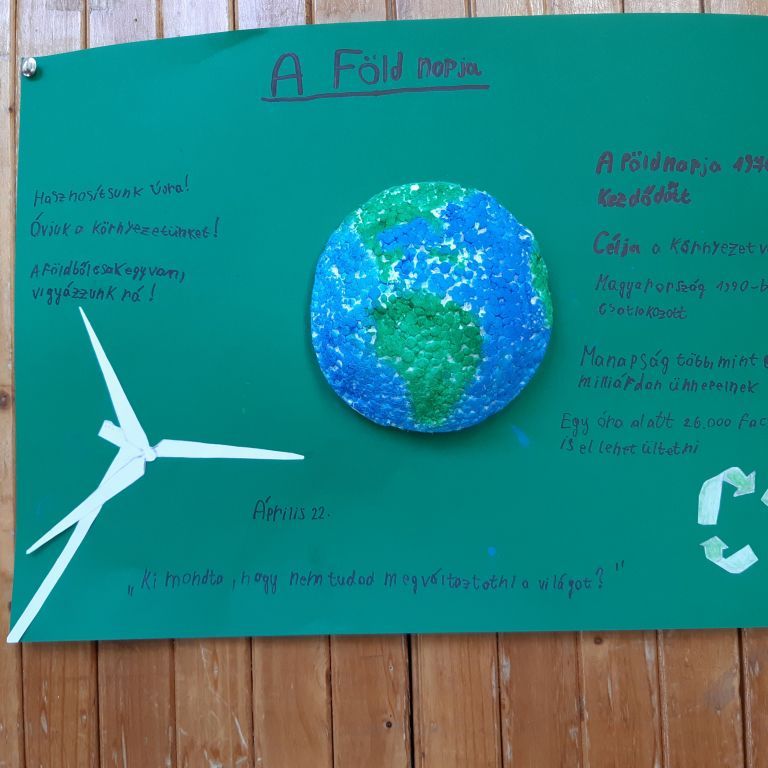 A Föld napja
Hasznosítsunk újra!
Óvjuk a környezetünket!
A Földből csak egy van,
vigyázzunk rá!
A Föld napja 1970
kezdődött
Célja a környezetv
Magyarország 1990-b
csatlakozott
Manapság több, mint
milliárdan ünnepelnek
Egy óra alatt 26.000 fac
is el lehet ültetni
Április 22.
„Ki mondta, hogy nem tudod megváltoztatni a világot?"